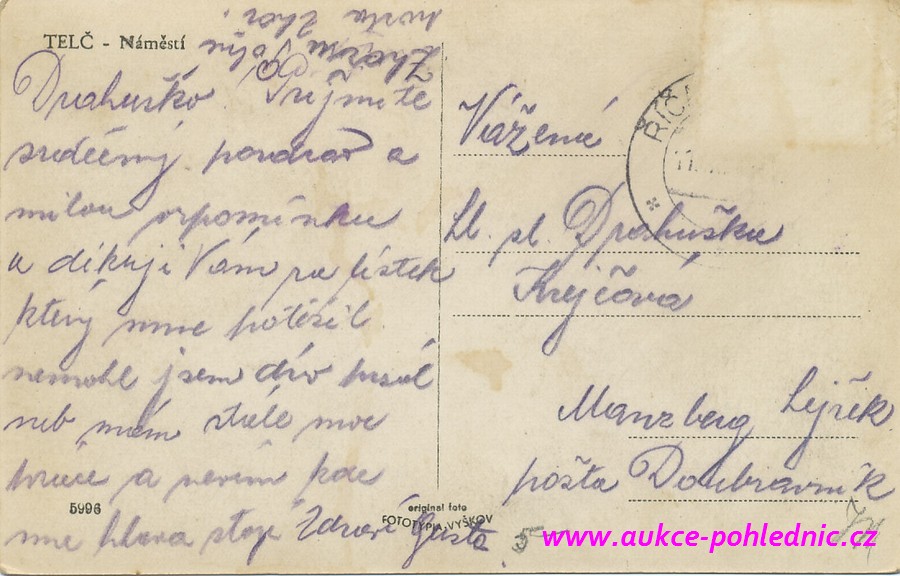 TELČ - Náměstí
Drahuško Přijměte
srdečný pozdrav a
milou vzpomínku
a děkuji Vám za lístek
který mne potěšil
nemohl jsem dřív psát
neb mám stále moc
práce a nevím kde
mne hlava stojí Zdraví Gusta
5996
original foto
FOTOTYPIA-VYŠKOV
Vážená
Sl. sl. Drahuška
Krejčová
Manzberg Lejřek
pošta Doubravník
ŘÍČA
www.aukce-pohlednic.cz